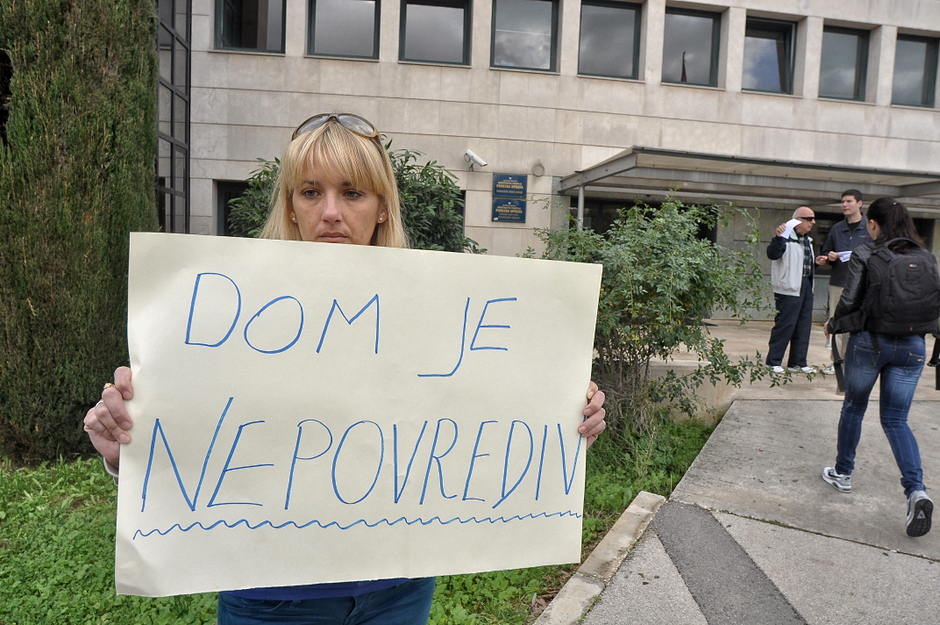 DOM JE
NEPOVREDIV